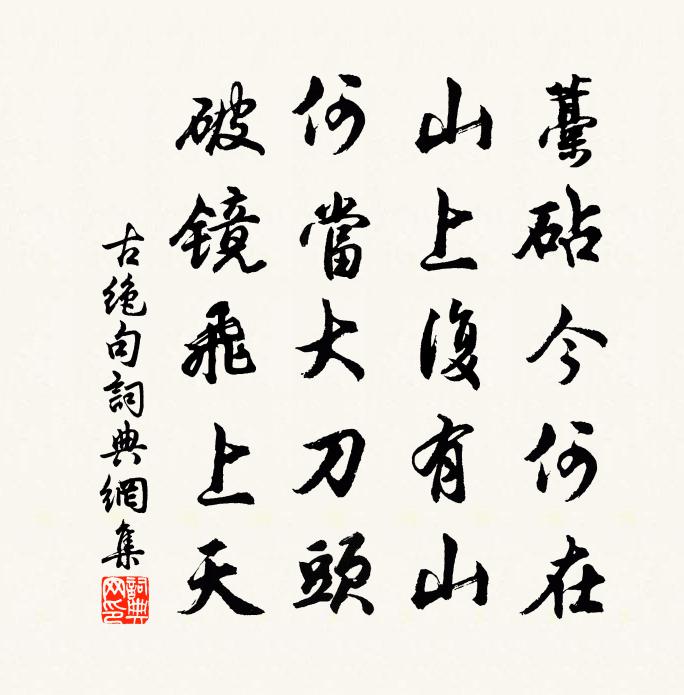 藳砧今何在
山上復有山
何當大刀頭
破镜飛上天
古绝句詞典網集
詞典网印